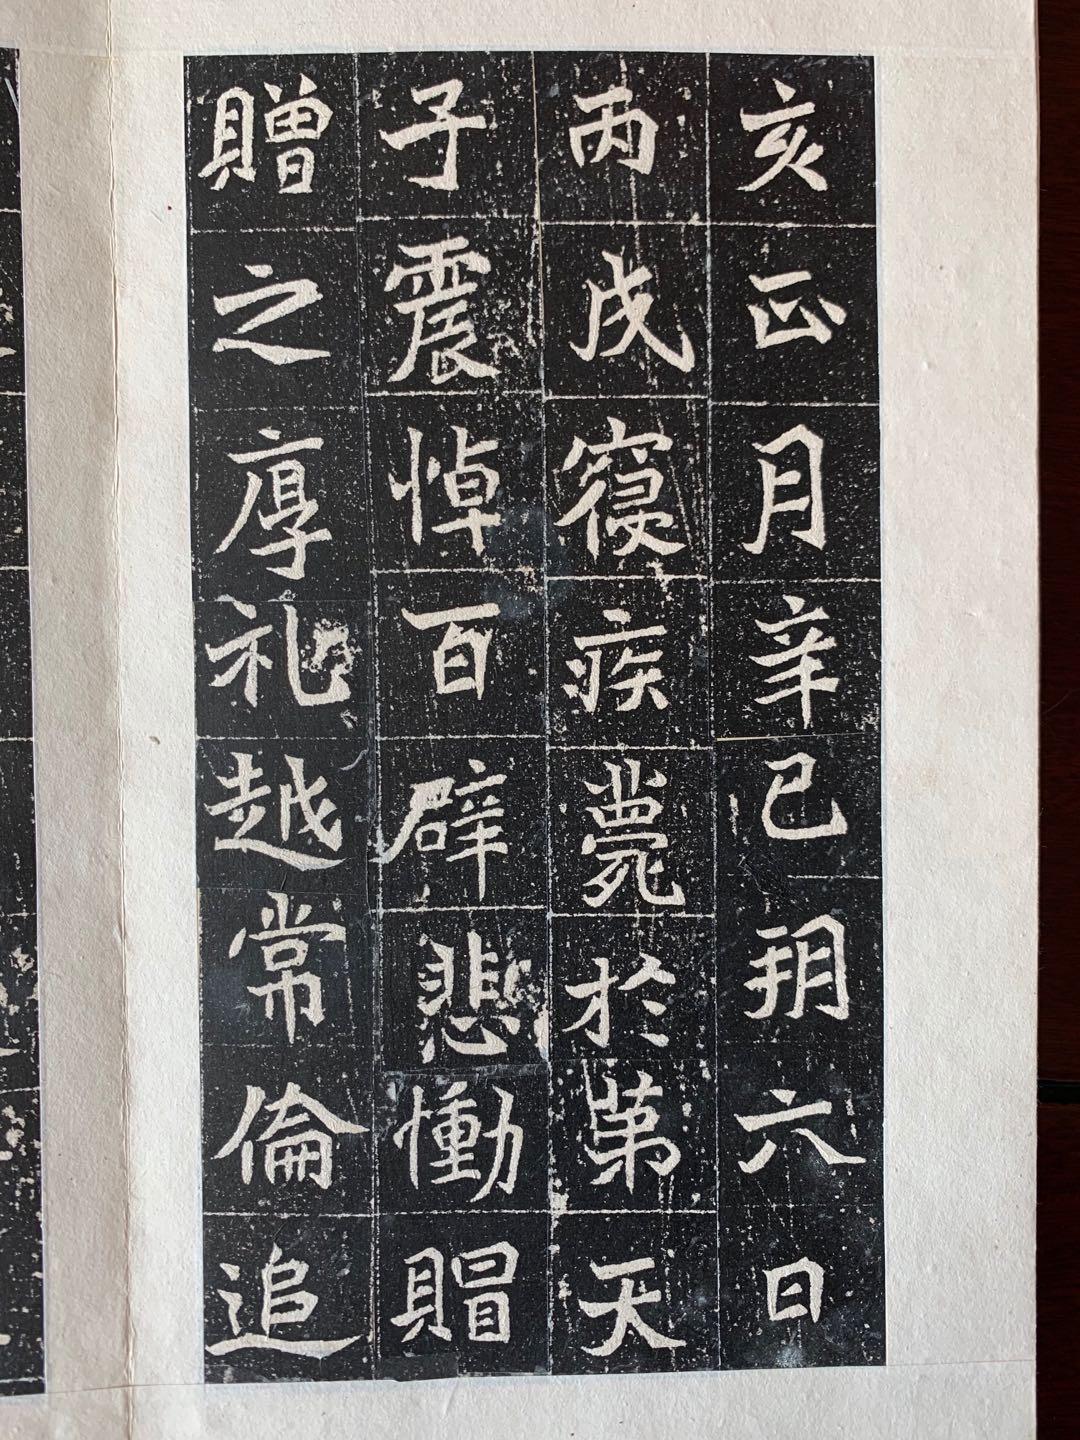 亥正月辛巳朔六日
丙戌寑疾薨於第天
子震悼百辟悲慟賵
贈之厚礼越常倫追